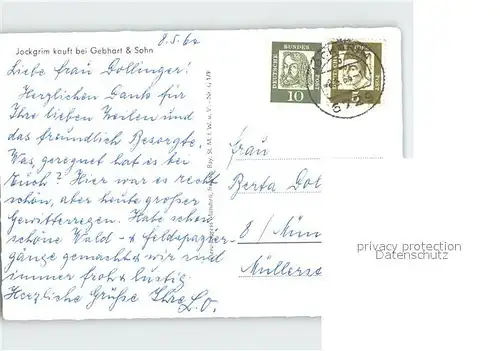 8.5.62
Jockgrim kauft bei Gebhart & Sohn
Liebe Frau Dollinger!
Herzlichen Dank für
Ihre lieben Zeilen und
das freundlich Besorgte.
Was, geregnet hat es bei
Euch? Hier war es recht
schön, aber heute großer
Gewitterregen. Habe schon
schöne Wald- & Feldspazier-
gänge gemacht & wir sind
immer froh & lustig.
Herzliche Grüße Ihre L.O.
DEUTSCHE BUNDESPOST
10
DEUTSCHE BUNDESPOST
5
6729
Frau
Berta Dol
8 / Mün
Müllers
privacy protection
Datenschutz